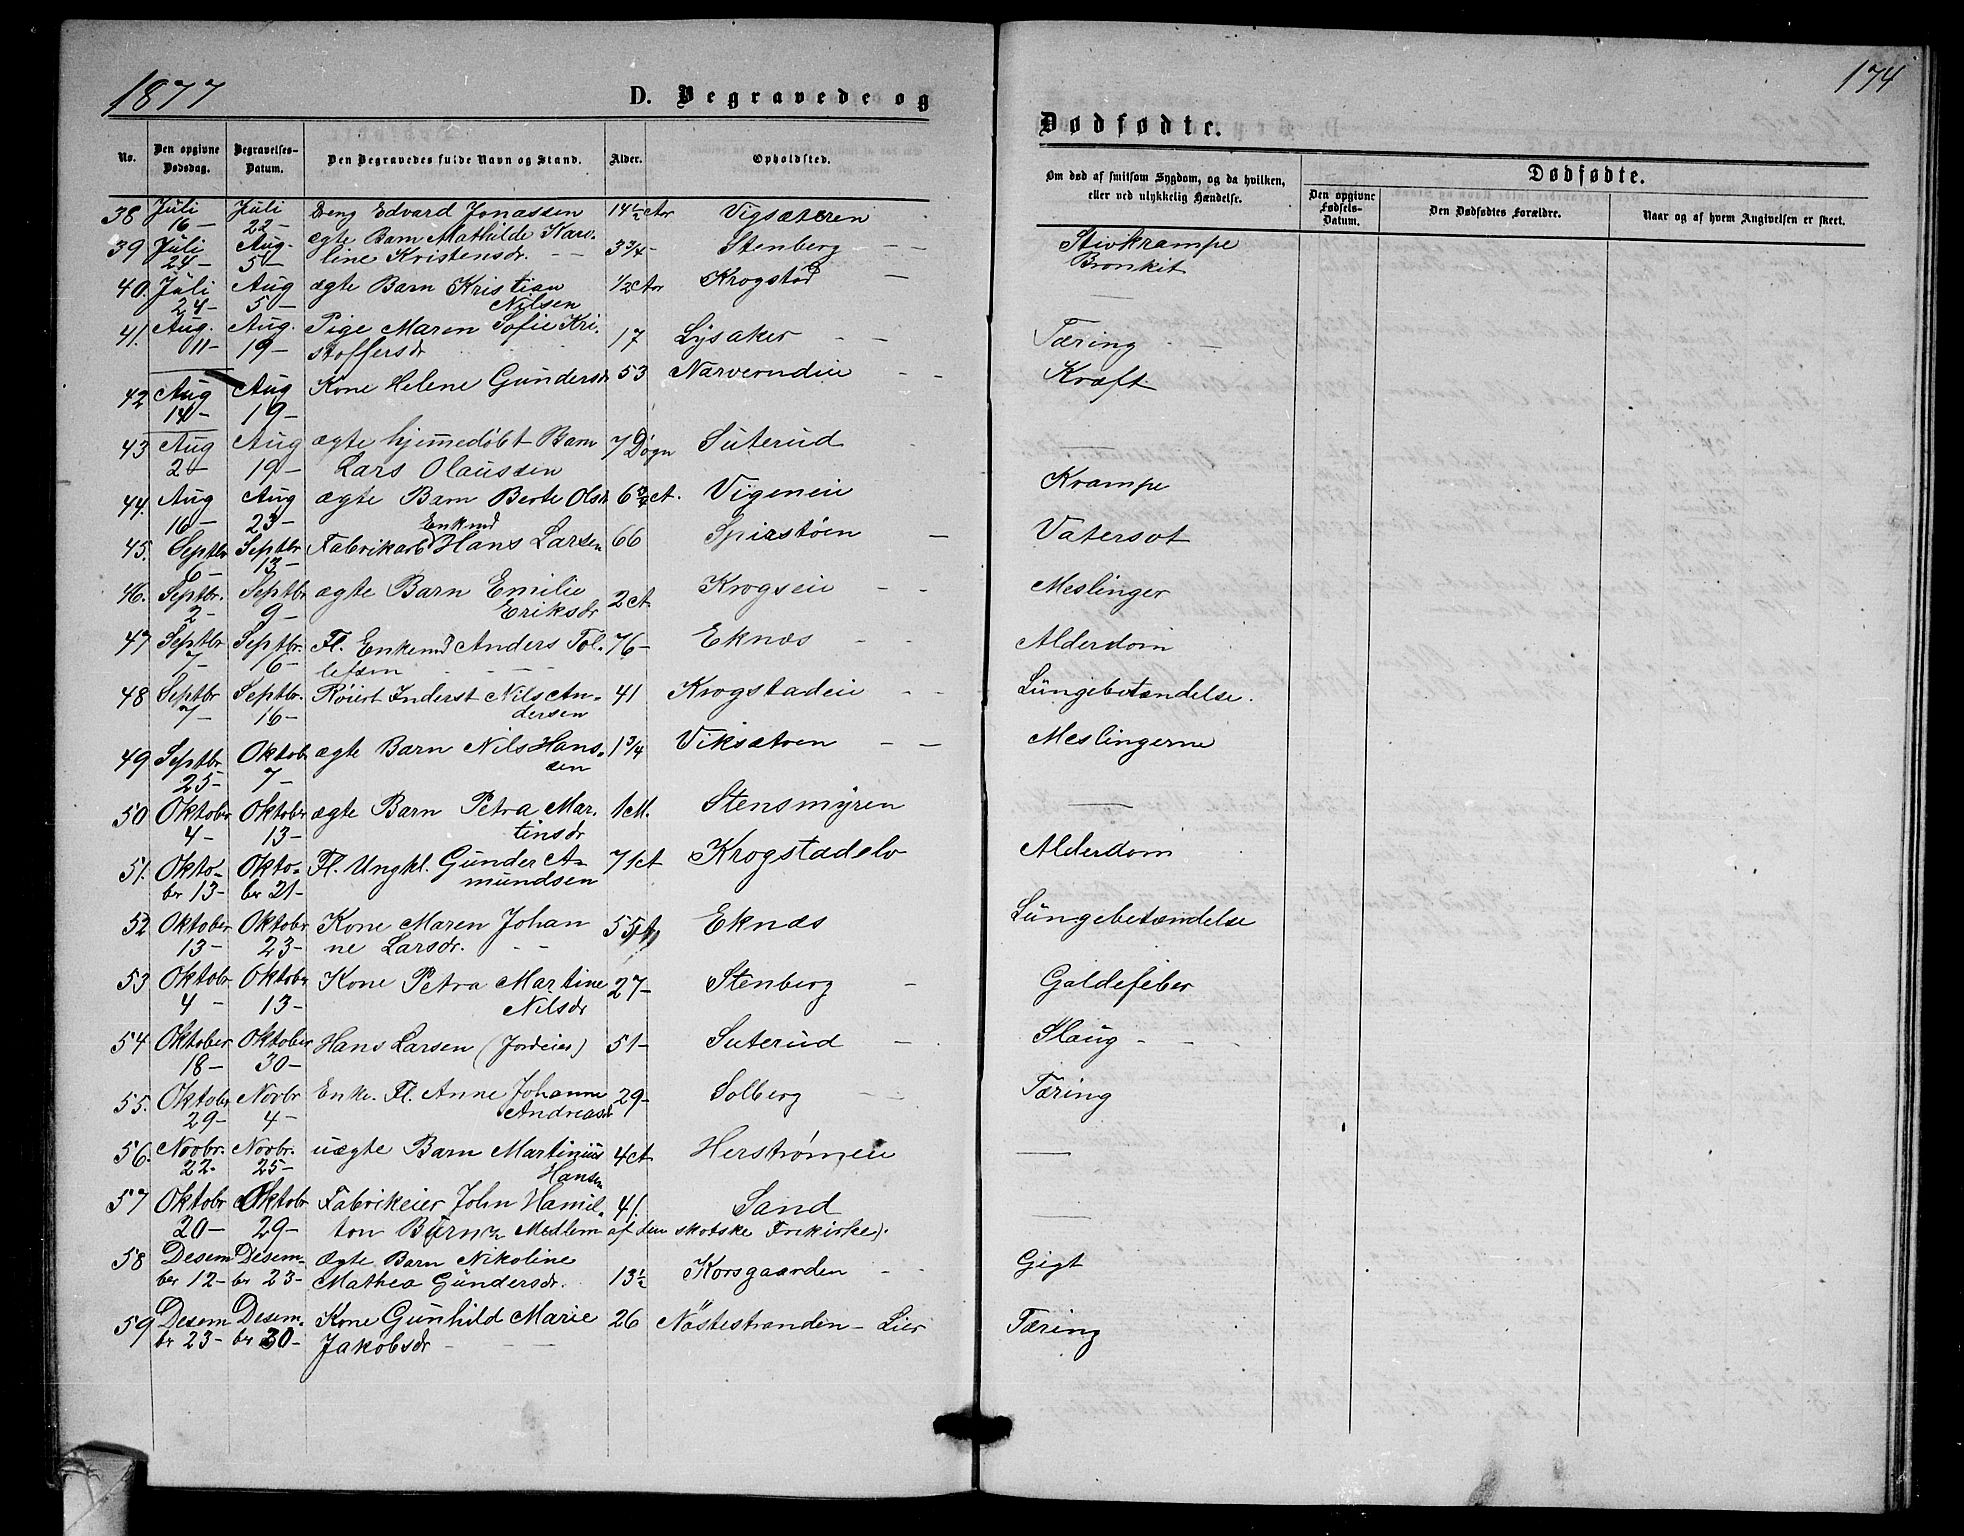 1877
D. Begravede og
No.
Den opgivne Dødsdag.
Begravelses-Datum.
Den Begravedes fulde Navn og Stand.
Alder.
Opholdsted.
38 Juli 16- Juli 22- Dreng Edvard Jonassen 14½ Vigsæteren
39 Juli 24- Aug. 5- ægte Barn Mathilde Karoline Kristensdr. 3¾- Stenberg
40. Juli 24- Aug 5- ægte Barn Kristian Nilsen ½ Krogstad
41. Aug. 11- Aug. 19- Pige Maren Sofie Kristoffersdr 17 Lysaker
42 Aug 14- Aug 19- Kone Helene Gundersdr 53 Narverudeie
43 Aug 2- Aug 19- ægte hjemmedøbt Barn Lars Olaussen 7 Døgn Suterud
44. Aug 16- Aug 23- ægte Barn Berte Olsdr 6 Vigeneie
45. Septbr 6- Septbr 13- Fabrikarb Enkmd Hans Larsen 66 Spirstøen
46. Septbr. 2- Septbr 9- ægte Barn Emilie Eriksdr 2 Krogseie
47 Septbr 7- Septbr. 16- Fl. Enkemd Anders Tollefsen 76- Eknæs
48 Septbr 7- Septbr. 16- Inderst Nils Andersen 41 Krogstadeie
49 Septbr 25- Oktob. 7- ægte Barn Nils Hansen 1¾ Viksætren
50 Oktober 4- Oktober 13- ægte Barn Petra Martinsdr 1 M. Stensmyren
51. Oktober 13- Oktober 21- Fl. Ungkl. Gunder Amundsen 71 Krogstadelv
52 Oktober 13- Oktobr 23- Kone Maren Johanne Larsdr. 55 Eknæs
53 Oktobr 4- Oktober 13- Kone Petra Martine Nilsdr 27- Stenberg
54 Oktober 18- Oktober 30- Hans Larsen (Jordeier) 51- Suterud
55. Oktober 29- Novbr 4- Enke. Fl. Anne Johanne Andreasdr 29- Solberg
56. Novbr. 22- Novbr. 25- uægte Barn Martinius Hansen 4 Herstrømeie
57 Oktobr 20- Oktobr 29- Fabrikeier John Hamilton (Medlem af den skotske Frikirke). 41. Sand
58 Desember 12- Desember 23- Ægte Barn Nikoline Mathea Gundersdr. 13½ Korsgaarden
59 Desember 23- Desember 30- Kone Gunhild Marie Jakobsdr 26 Nøstestranden - Lier
174
Dødfødte.
Om død af smitsom Sygdom, og da hvilken, eller ved ulykkelig Hændelse.
Dødfødte.
Den opgivne Fødsels-Datum.
Den Dødfødtes Forældre.
Naar og af hvem Angivelsen er skeet.
Stivkrampe
Bronkit
Tæring
Kræft
Krampe
Vatersot
Meslinger
Alderdom
Lungebetændelse.
Meslingerne
Alderdom
Lungebetændelse
Galdefeber
Slaug
Tæring
Gigt
Tæring